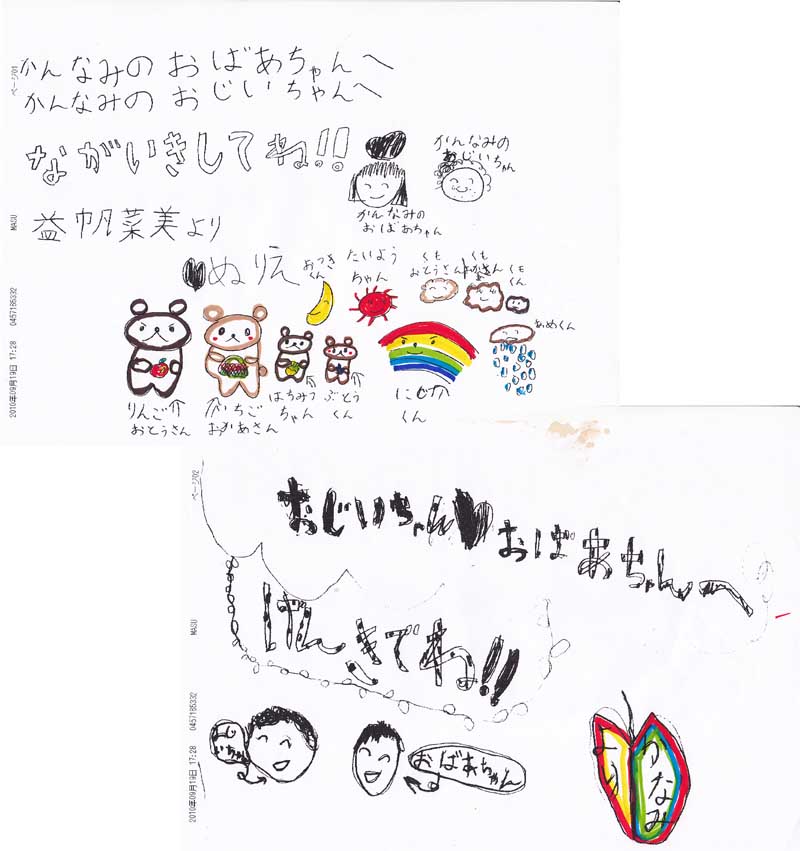 かんなみの おばあちゃんへ
かんなみの おじいちゃんへ
ながいきしてね!!
かんなみの
おじいちゃん
かんなみの
おばあちゃん
益帆菜美より
ぬりえ
おつき
くん
たいよう
ちゃん
くも
おとうさん
くも
おかあさん
くも
くん
あめくん
りんご
おとうさん
いちご
おかあさん
はちみつ
ちゃん
ぶどう
くん
にじ
くん
ページ01
MASU
0457185332
2010年09月19日 17:28
ページ02
おじいちゃん♥おばあちゃんへ
げんきでね!!
おじ
いちゃん
おばあちゃん
かなみ
より
MASU
0457185332
2010年09月19日 17:28